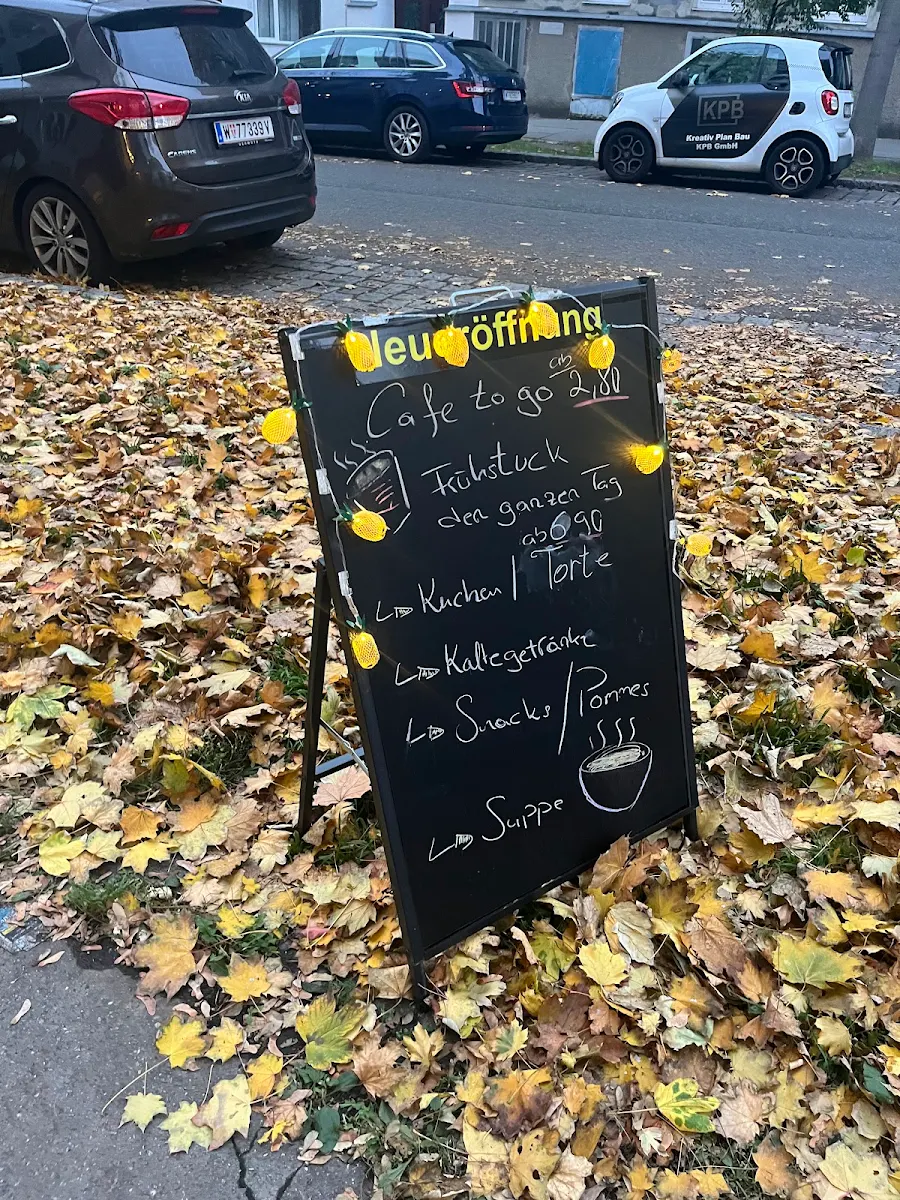 KIA
CARENS
W 77339V
KPB
Kreativ Plan Bau
KPB GmbH
Neueröffnung
Cafe to go ab 2,80
Frühstück
den ganzen Tag
ab 6 90
Kuchen / Torte
Kaltegetränke
Snacks / Pommes
Suppe